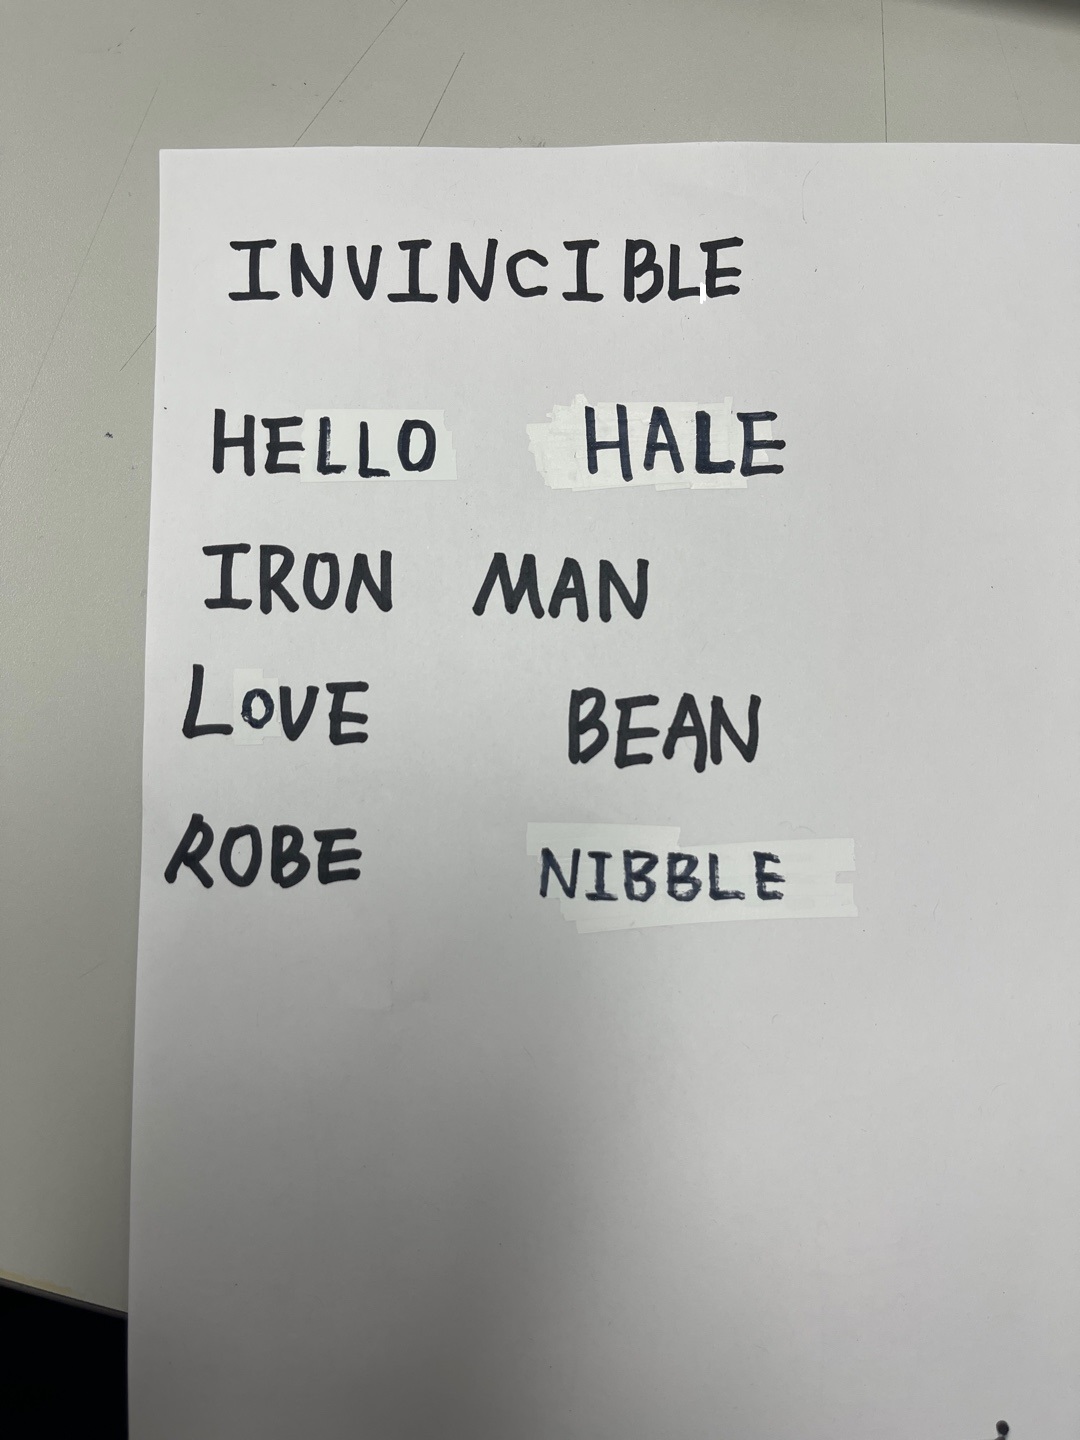 INVINCIBLE
HELLO HALE
IRON MAN
LOVE BEAN
ROBE NIBBLE